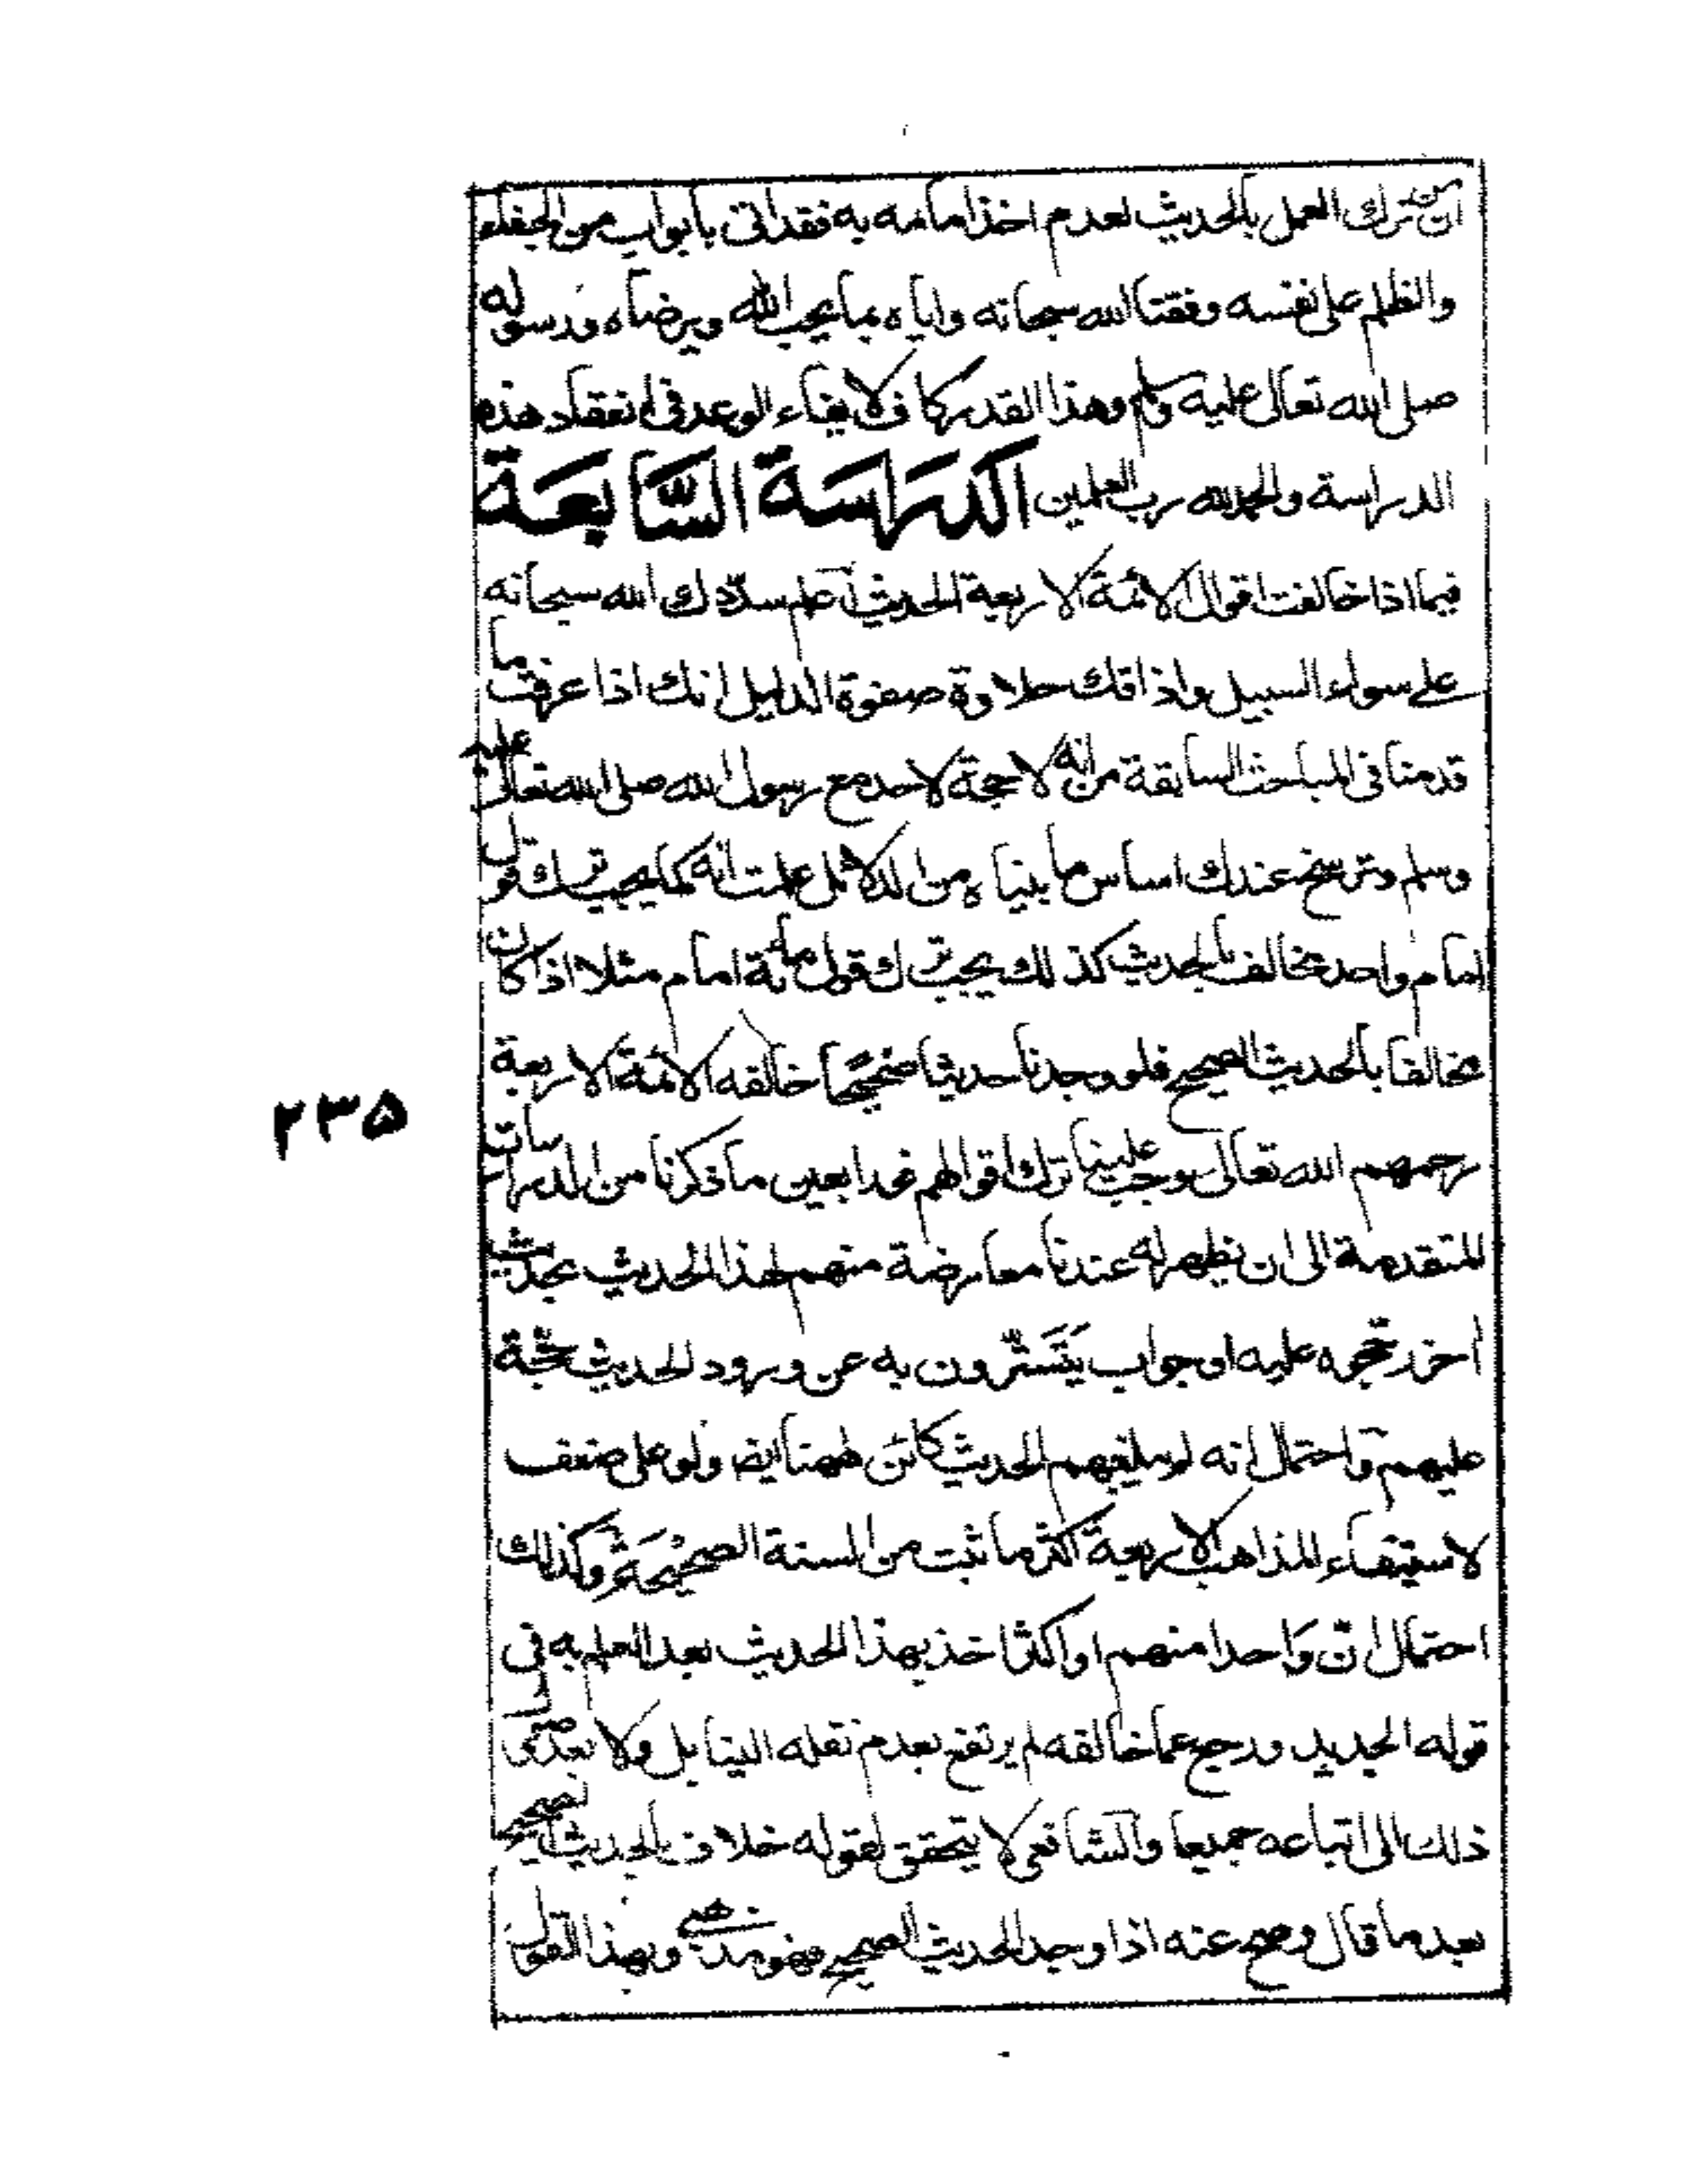 ان ترك العمل بالحديث لعدم اخذ امامه به فقد اتى بابواب من الجفاء
والظلم على نفسه وفقنا الله سبحانه واياه بما يحب الله ويرضاه ورسوله
صلى الله تعالى عليه وسلم وهذا القدر كاف لايفاء الوعد فى انعقاد هذه
الدراسة والحمد لله رب العلمين الدِّرَاسَة السَّابِعَة
فيما اذا خالفت اقوال الائمة الاربعة الحديث اعلم سدّدك الله سبحانه
على سواء السبيل واذاقك حلاوة صفوة الدليل انك اذا عرفت ما
قدمنا فى المباحث السابقة من انه لا حجة لاحد مع رسول الله صلى الله تعالى عليه
وسلم وترسخ عندك اساس ما بنيناه من الدلائل علمت انه كما يجب ترك قول
امام واحد مخالف بالحديث كذلك يجب ترك قول مائة امام مثلا اذا كان
مخالفا بالحديث الصحيح فلو وجدنا حديثا صحيحا خالفه الائمة الاربعة
رحمهم الله تعالى وجب علينا ترك اقوالهم غدا بعين ما ذكرنا من الدراسات
المتقدمة الى ان يظهر له عندنا معارضة منهم لهذا الحديث بحديث
اخر رجحوه عليه او جواب يَتَسَتَّرون به عن ورود الحديث حجّة
عليهم واحتمال انه لم يبلغهم الحديث كائن ههنا ايضا ولو على ضعف
لاستيفاء المذاهب الاربعة اكثر ما ثبت من السنة الصحيحة وكذلك
احتمال انّ وَاحدا منهم او اكثر اخذ بهذا الحديث بعد العلم به فى
قوله الجديد ورجع عما خالفه لم يرتفع بعدم نقله الينا بل ولا بعدم وصى
ذلك الى اتباعه جميعا والشافعى لا يتحقق لقوله خلاف بالحديث الصحيح
بعد ما قال وصح عنه اذا وجد الحديث الصحيح فهو مذهبى وبهذا القول
٢٣٥